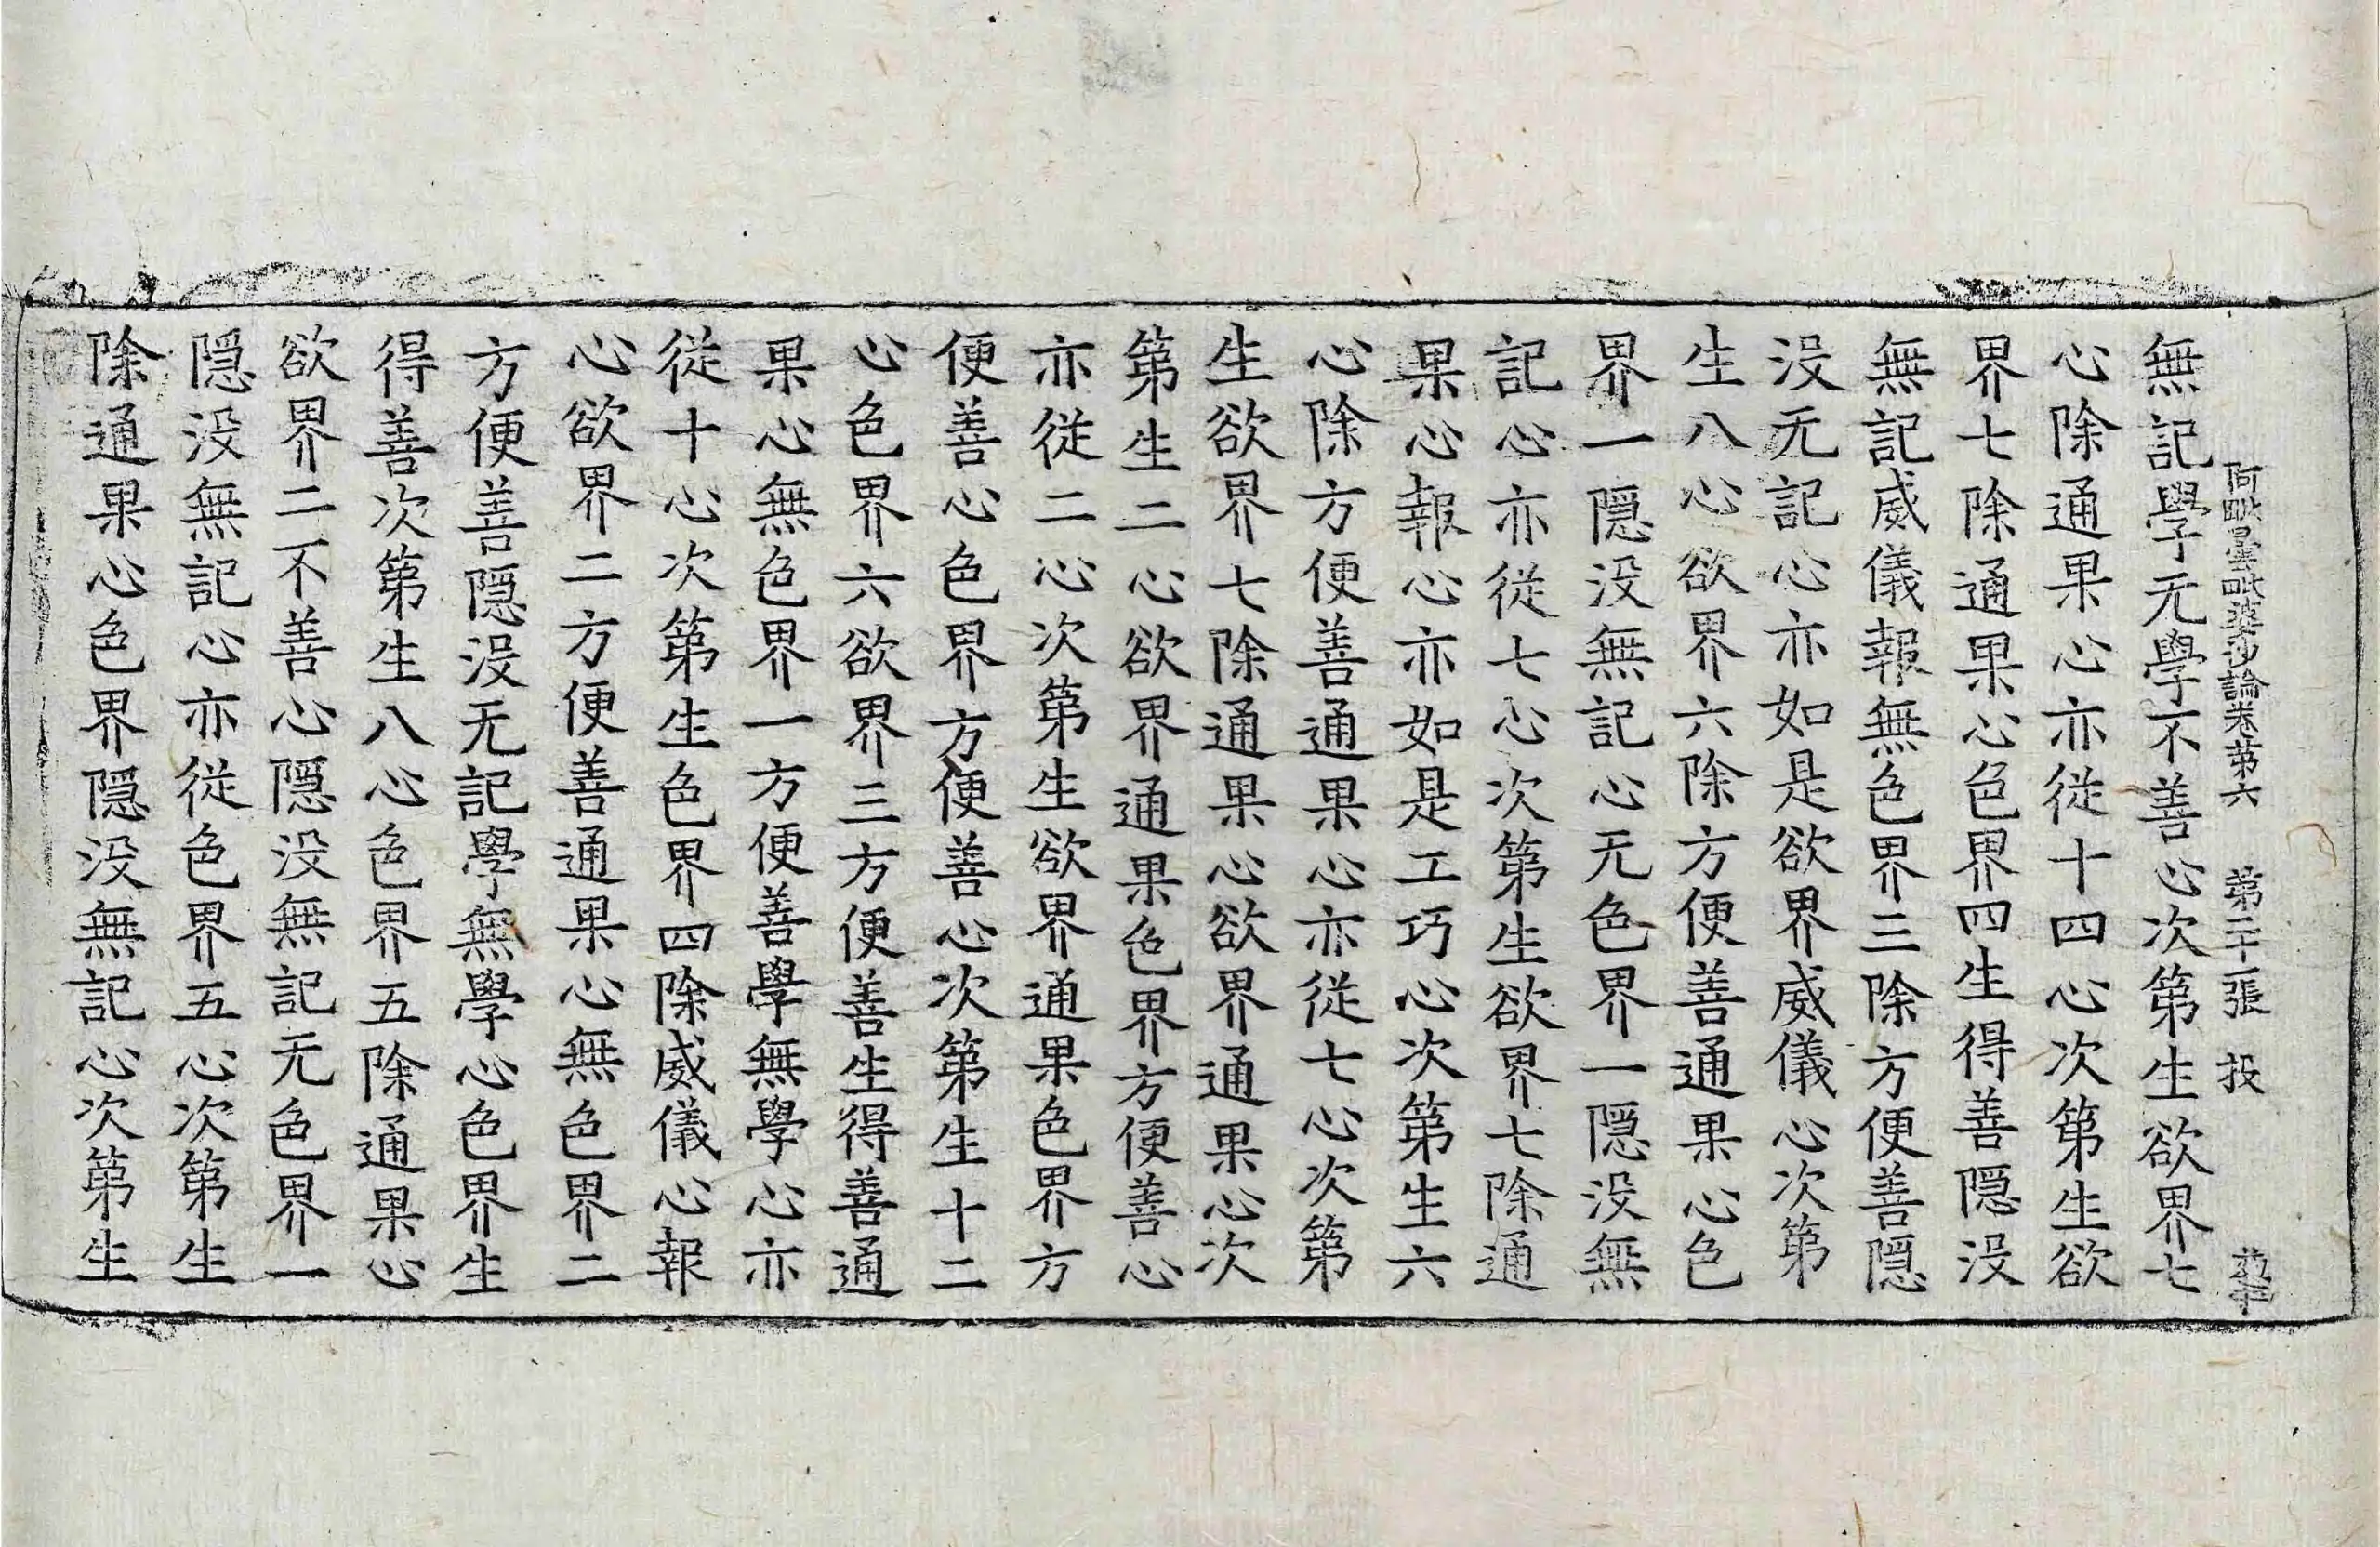 阿毗曇毗婆沙論卷苐六 苐二十張 投
無記學无學不善心次第生欲界七
心除通果心亦從十四心次第生欲
界七除通果心色界四生得善隠没
無記威儀報無色界三除方便善隠
没无記心亦如是欲界威儀心次第
生八心欲界六除方便善通果心色
界一隠没無記心无色界一隠没無
記心亦從七心次第生欲界七除通
果心報心亦如是工巧心次第生六
心除方便善通果心亦從七心次第
生欲界七除通果心欲界通果心次
第生二心欲界通果色界方便善心
亦從二心次第生欲界通果色界方
便善心色界方便善心次第生十二
心色界六欲界三方便善生得善通
果心無色界一方便善學無學心亦
從十心次第生色界四除威儀心報
心欲界二方便善通果心無色界二
方便善隠没无記學無學心色界生
得善次第生八心色界五除通果心
欲界二不善心隠没無記无色界一
隠没無記心亦從色界五心次第生
除通果心色界隠没無記心次第生